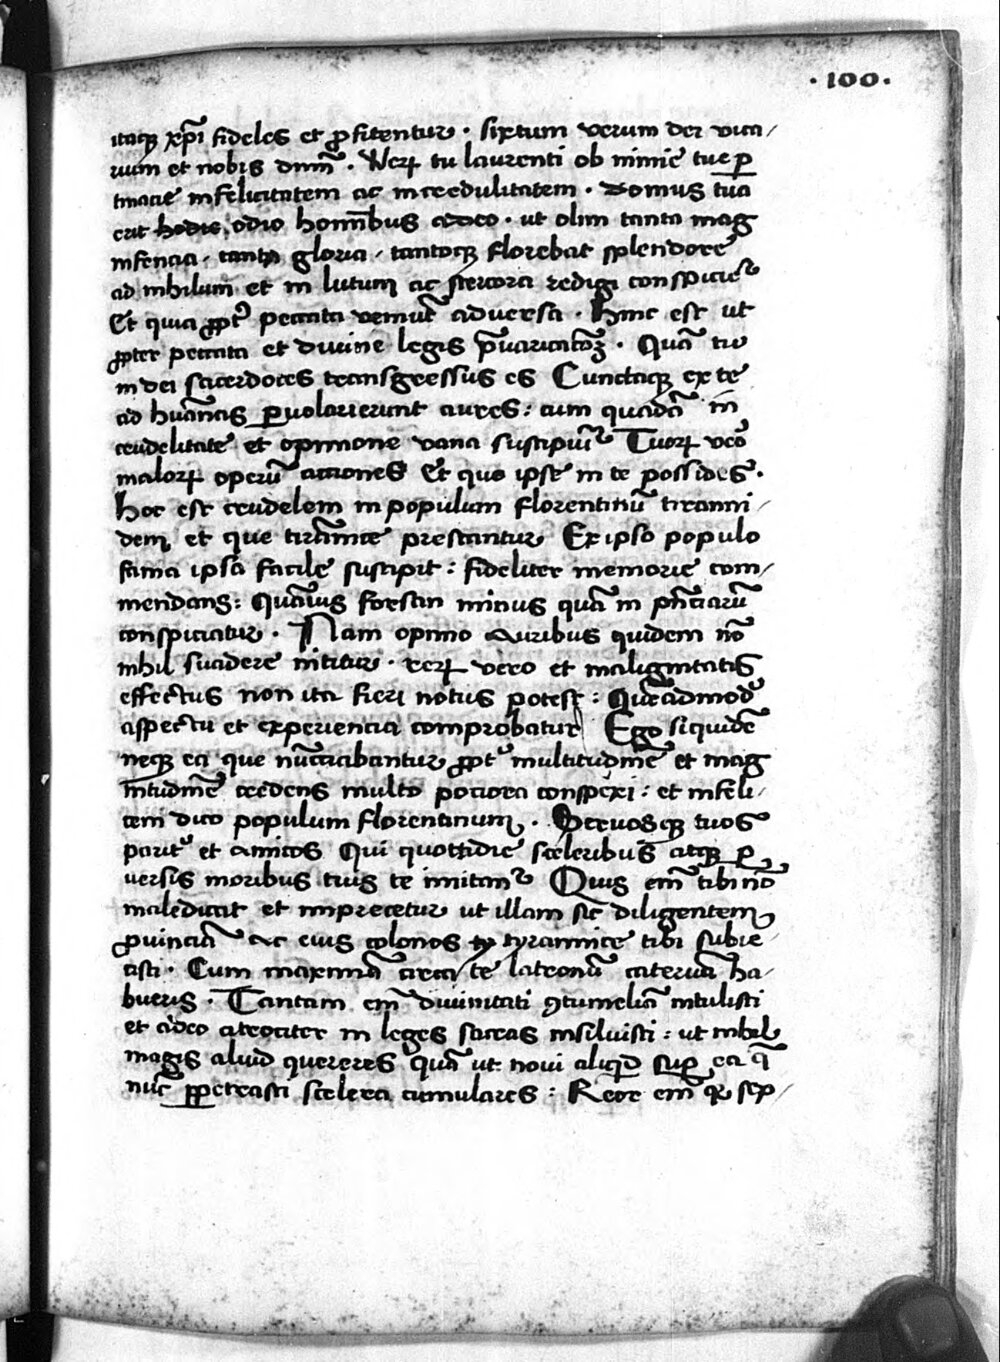 · 100 ·
itaqꝫ xp̄i fideles et ꝓfitentur · sixtum verum dei vica/
rium et nobis dnm̄ · Verꝝ tu laurenti ob nimie tue ꝑ
tinacie infelicitatem ac incredulitatem · domus tua
erit hodie odio hominibus adeo · ut olim tanta mag
nificencia · tanta gloria · tantoqꝫ florebat splendore
ad nihilum et in lutum ac stercora redigi conspiciet᷑
Et quia ꝓpt᷑ peccata veniūt adversa · Hinc est ut
ꝓpter peccata et divine legis p̄varicacōꝫ · Quā tu
in dei sacerdotes transgressus es Cunctaqꝫ ex te
ad huānas ꝑvolarierunt aures : cum quadā in
crudelitate et opinione vana suscipiūt᷑ Tuorꝝ vō
malorꝝ operū actiones Et quo ipse in te possides ·
Hoc est crudelem in populum florentinū tiranni/
dem et que tirānice prestantur Ex ipso populo
fama ipsa facile suscipit : fideliter memorie com/
mendans : Quāvis forsan minus quā in pn̄ciarū
conspiciatur · Nam opinio auribus quidem nō
nihil suadere nititur · rerꝝ vero et malignitatis
effectus non ita fieri notus potest : Quēadmodū
aspectu et experiencia comprobatur Ego siquidē
neqꝫ ea que nūcciabantur ꝓpt᷑ multitudinē et mag
nitudinē credens multo pociora conspexi : et infeli/
cem dico populum florentinum · Servosqꝫ tuos
parit᷑ et amicos Qui quottidie sceleribus atqꝫ ꝑ
versis moribus tuis te imitant᷑ Quis em̄ tibi nō
maledicat et imprecetur ut illam sic diligentem
ꝓvinciā ac eius colonos ty tyrannice tibi subie/
cisti · Cum maximā circa te latronū catervā ha/
bueris · Tantam em̄ divinitati ꝯtumeliā intulisti
et adeo atrociter in leges sacras insiluisti : ut nihil
magis aliud quereres quā ut novi aliqid suꝑ ea q̄
nūc ꝑpetrasti scelera cumulares : Reor em̄ qꝛ sep/